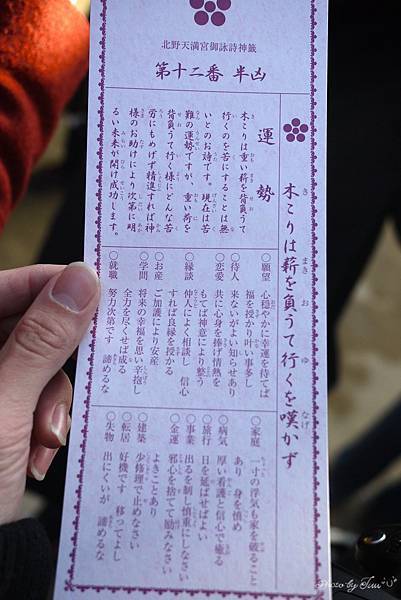 北野天満宮御詠詩神籤
第十二番 半凶
木こりは薪を負うて行くを嘆かず
運勢
木こりは重い薪を背負うて
行くのを苦にすることは無
いとのお詩です。現在は苦
難の運勢ですが、重い荷を
背負うて行く様にどんな苦
労にもめげず精進すれば神
様のお助けにより次第に明
るい未来が開け成功します。
○願望 心穏やかに幸運を待てば
福を授かり叶い事多し
○待人 来ないがよい知らせあり
○恋愛 共に心身を捧げ情熱を
もてば神意により整う
○縁談 仲人によく相談し 信心
すれば良縁を授かる
○お産 ご加護により安産
○学問 将来の幸福を思い辛抱し
全力を尽くせば成る
○就職 努力次第です 諦めるな
○家庭 一寸の浮気も家を破ること
あり 身を慎め
○病気 厚い看護と信心で癒る
○旅行 日を延ばせばよい
○事業 出るを制し慎重にしなさい
○金運 邪心を捨てて励みなさい
よきことあり
○建築 少修理で止めなさい
○転居 好機です 移ってよし
○失物 出にくいが 諦めるな
Photo by